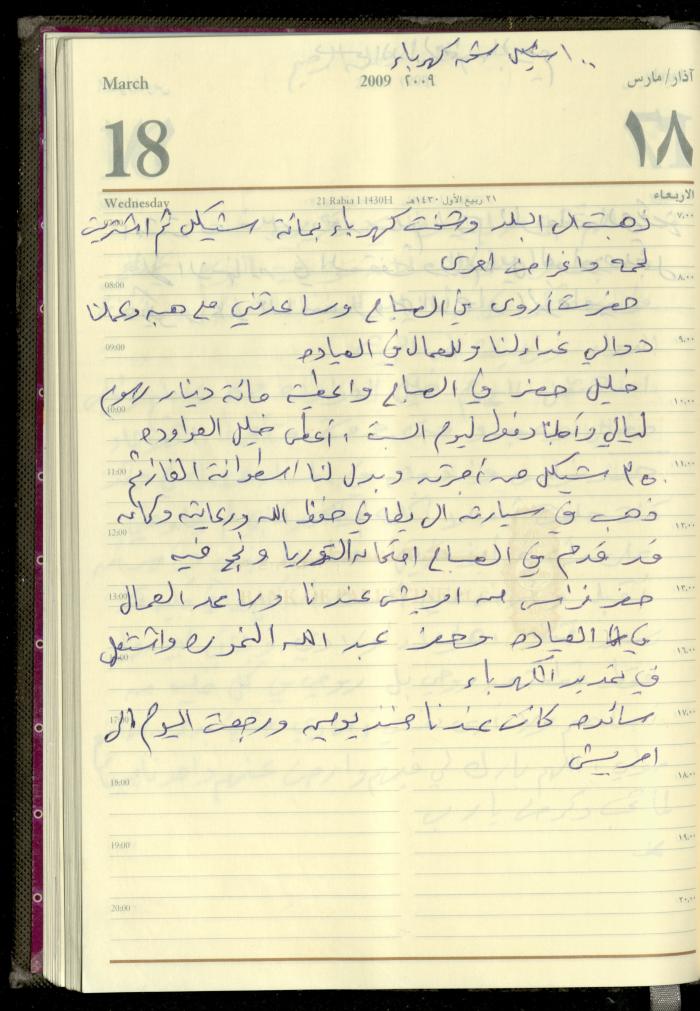 ١٠٠ شيكل شحن كهرباء
March 2009 ٢٠٠٩ آذار/مارس
18 ١٨
Wednesday 21 Rabia I 1430H ٢١ ربيع الأول ١٤٣٠هـ الاربعاء
ذهبت الى البلد وشحنت كهرباء بمائة شيكل ثم اشتريت
لحمه واغراض اخرى
حضرت أروى في الصباح وساعدتني مع هبه وعملنا
دوالي غداء لنا وللعمال في العياده
خليل حضر في الصباح واعطيته مائة دينار رسوم
ليالي وأجلنا دفعها ليوم السبت، أعطى خليل العواوده
٣٥٠ شيكل من أجرته وبدل لنا اسطوانة الغاز ثم
ذهب في سيارته الى يطا في حفظ الله ورعايته وكان
قد قدم في الصباح امتحان التؤوريا ونجح فيه
حضر فراس من امريش عندنا وساعد العمال
في العياده وحضر عبد الله النموره واشتغل
في تمديد الكهرباء
سائده كانت عندنا منذ يومين ورجعت اليوم الى
امريش
07:00 ٧:٠٠
08:00 ٨:٠٠
09:00 ٩:٠٠
10:00 ١٠:٠٠
11:00 ١١:٠٠
12:00 ١٢:٠٠
13:00 ١٣:٠٠
١٦:٠٠
17:00 ١٧:٠٠
18:00 ١٨:٠٠
19:00 ١٩:٠٠
20:00 ٢٠:٠٠